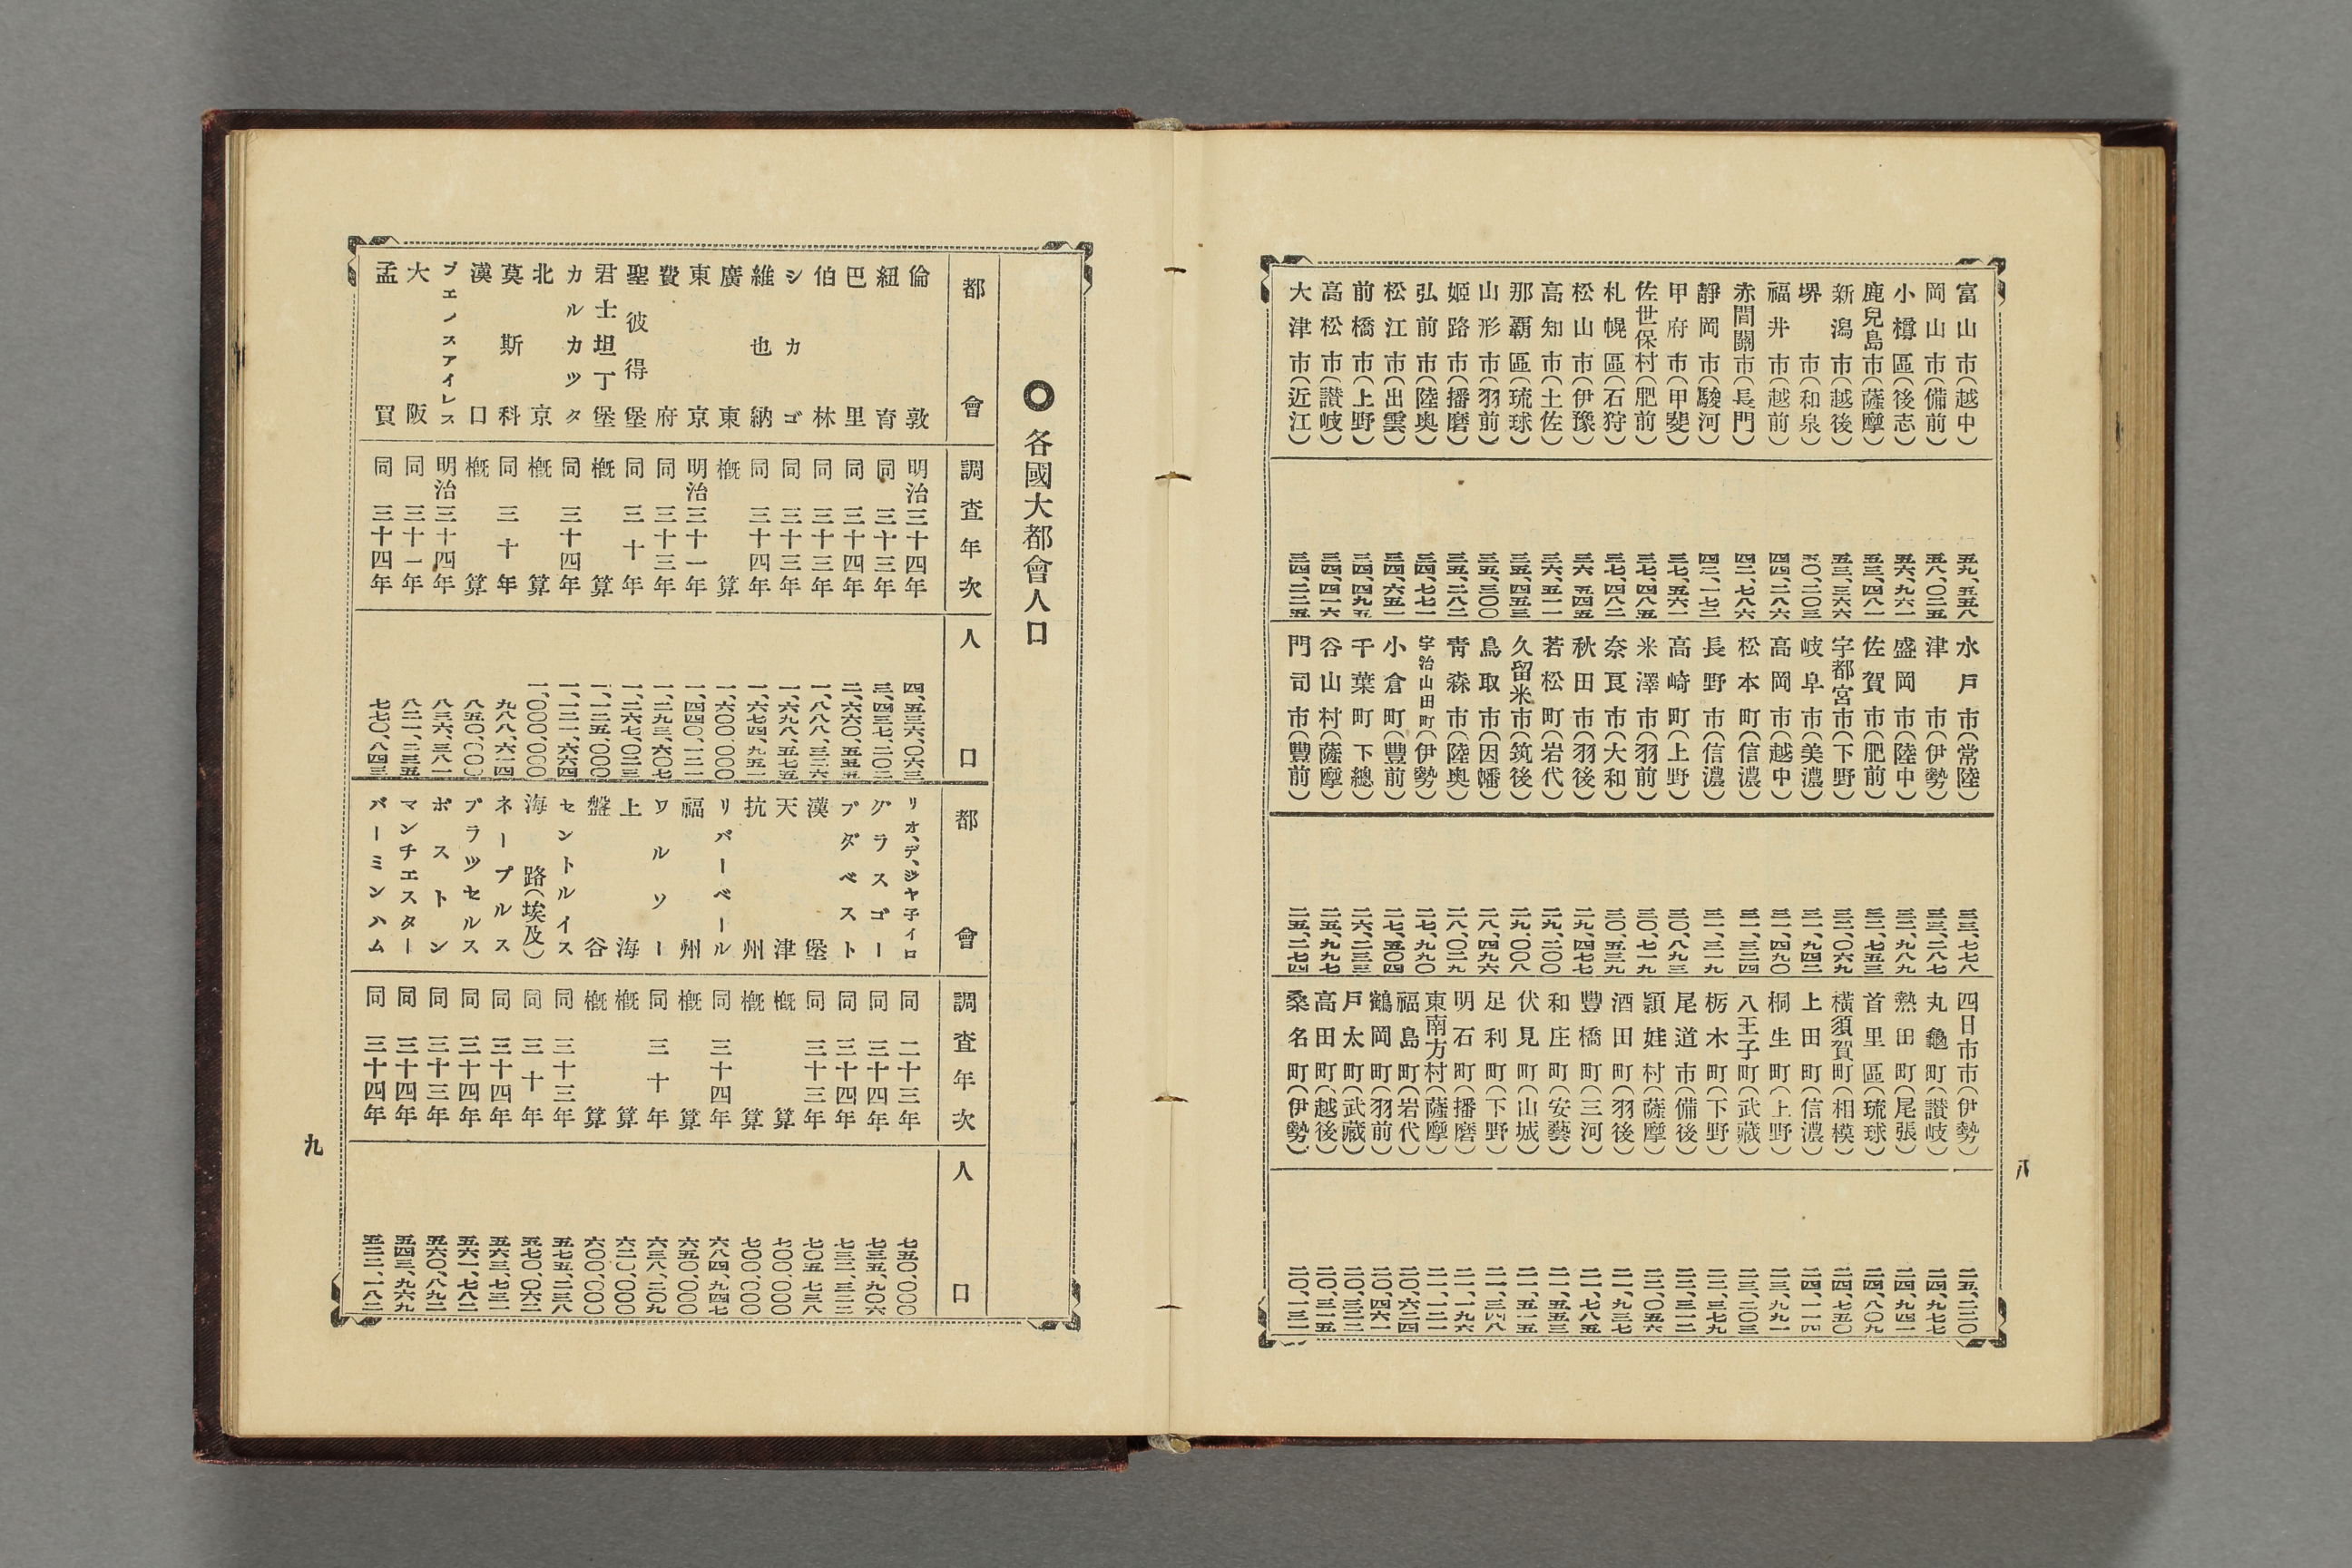 富山市(越中) 五九、五五八
岡山市(備前) 五八、〇二五
小樽區(後志) 五六、九六一
鹿兒島市(薩摩) 五三、四八一
新潟市(越後) 五三、三六六
堺市(和泉) 五〇、二〇三
福井市(越前) 四四、二八六
赤間關市(長門) 四二、七八六
靜岡市(駿河) 四二、一七二
甲府市(甲斐) 三七、五六一
佐世保村(肥前) 三七、四八五
札幌區(石狩) 三七、四八二
松山市(伊豫) 三六、五四五
高知市(土佐) 三六、五一一
那覇區(琉球) 三五、四五三
山形市(羽前) 三五、三〇〇
姬路市(播磨) 三五、二八二
弘前市(陸奥) 三四、七七一
松江市(出雲) 三四、六五一
前橋市(上野) 三四、四九五
高松市(讃岐) 三四、四一六
大津市(近江) 三四、二二五
水戶市(常陸) 三三、七七八
津市(伊勢) 三三、二八七
盛岡市(陸中) 三二、九八九
佐賀市(肥前) 三二、七五三
宇都宮市(下野) 三二、〇六九
岐阜市(美濃) 三一、九四二
高岡市(越中) 三一、四九〇
松本町(信濃) 三一、三二四
長野市(信濃) 三一、三一九
高崎町(上野) 三〇、八九三
米澤市(羽前) 三〇、七一九
奈良市(大和) 三〇、五三九
秋田市(羽後) 二九、四七七
若松町(岩代) 二九、二〇〇
久留米市(筑後) 二九、〇〇八
鳥取市(因幡) 二八、四九六
靑森市(陸奥) 二八、〇二九
宇治山田町(伊勢) 二七、九九〇
小倉町(豐前) 二七、五〇四
千葉町 下總) 二六、二三三
谷山村(薩摩) 二五、九九七
門司市(豐前) 二五、二七四
四日市市(伊勢) 二五、二二〇
丸龜町(讃岐) 二四、九七七
熱田町(尾張) 二四、九四二
首里區(琉球) 二四、八〇九
橫須賀町(相模) 二四、七五〇
上田町(信濃) 二四、一一四
桐生町(上野) 二三、九九一
八王子町(武藏) 二三、二〇三
栃木町(下野) 二二、三七九
尾道市(備後) 二二、三一二
頴娃村(薩摩) 二二、〇五六
酒田町(羽後) 二一、九三七
豐橋町(三河) 二一、七八五
和庄町(安藝) 二一、五五三
伏見町(山城) 二一、五一五
足利町(下野) 二一、三四八
明石町(播磨) 二一、一九六
東南方村(薩摩) 二一、一二一
福島町(岩代) 二〇、六二四
鶴岡町(羽前) 二〇、四六一
戶太町(武藏) 二〇、三二二
高田町(越後) 二〇、三一五
桑名町(伊勢) 二〇、一三一
八
◎各國大都會人口
都會 調査年次 人口
倫敦 明治三十四年 四、五三六、〇六三
紐育 同三十三年 三、四三七、二〇二
巴里 同三十四年 二、六六〇、五五九
伯林 同三十三年 一、八八八、三二六
シカゴ 同三十三年 一、六九八、五七五
維也納 同三十四年 一、六七四、九五一
廣東 概算 一、六〇〇、〇〇〇
東京 明治三十一年 一、四四〇、一二一
費府 同三十三年 一、二九三、六〇七
聖彼得堡 同三十年 一、二六七、〇二三
君士坦丁堡 概算 一、一二五、〇〇〇
カルカツタ 同三十四年 一、一二一、六六四
北京 概算 一、〇〇〇、〇〇〇
莫斯科 同三十年 九八八、六一四
漢口 概算 八五〇、〇〇〇
ブエノスアイレス 明治三十四年 八三六、三八一
大阪 同三十一年 八二一、二三五
孟買 同三十四年 七七〇、八四三
都會 調査年次 人口
リオ、デ、ジヤ子イロ 同二十三年 七五〇、〇〇〇
グラスゴー 同三十四年 七三五、九〇六
ブダペスト 同三十四年 七三二、三二二
漢堡 同三十三年 七〇五、七三八
天津 概算 七〇〇、〇〇〇
抗州 概算 七〇〇、〇〇〇
リバーペール 同三十四年 六八四、九四七
福州 概算 六五〇、〇〇〇
ワルソー 同三十年 六三八、二〇九
上海 概算 六二〇、〇〇〇
盤谷 概算 六〇〇、〇〇〇
セントルイス 同三十三年 五七五、二三八
海路(埃及) 同三十年 五七〇、〇六二
ネープルス 同三十四年 五六三、七三一
ブラツセルス 同三十四年 五六一、七八二
ボストン 同三十三年 五六〇、八九二
マンチエスター 同三十四年 五四三、九六九
バーミンハム 同三十四年 五二二、一八二
九